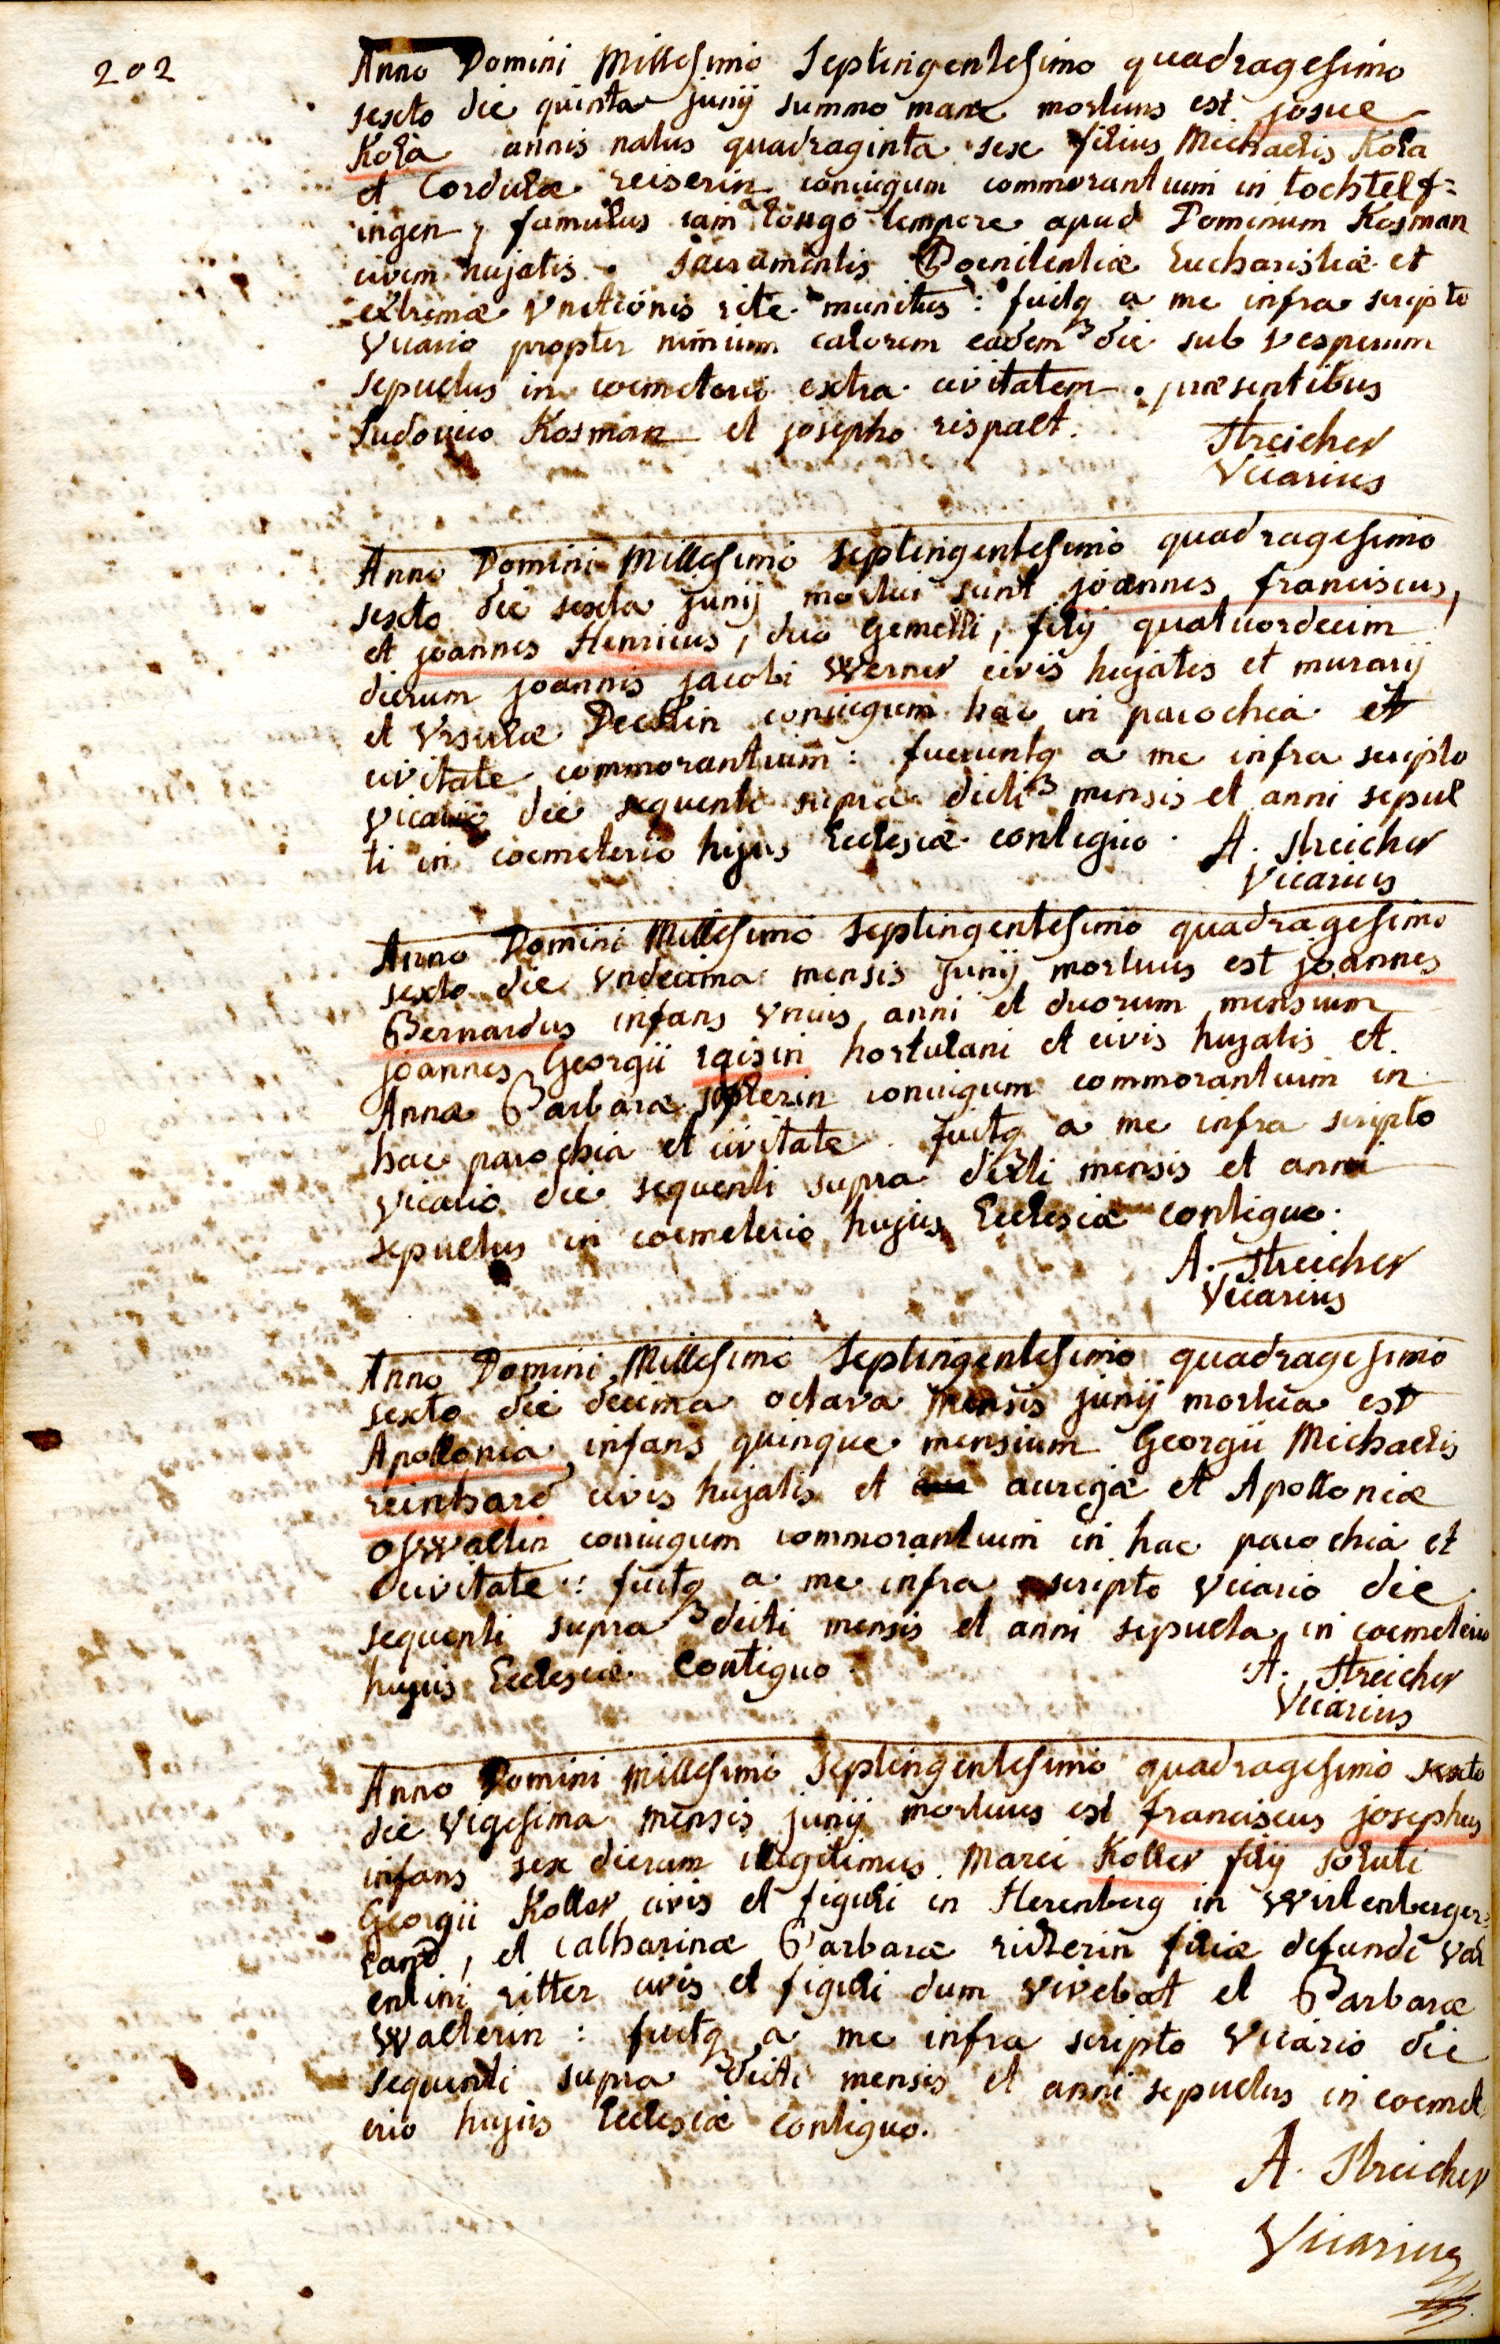 202
Anno Domini Millesimo Septingentesimo quadragesimo
sexto die quinta Junij summo mane mortuus est josue
Kola annis natus quadraginta sex filius Michaelis Kola
et Cordulæ reiserin coniugum commorantium in tochtelf=
ingen, famulus iam a longo tempore apud Dominum Kosman
civem hujatis. Sacramentis Poenitentiæ Eucharistiæ et
extremæ Vnctionis rite munitus: fuitq a me infra scripto
Vicario propter nimium calorem eadem die sub vesperum
sepultus in coemeterio extra civitatem. præsentibus
Ludovico Kosman et josepho rispalt.
Streicher
Vicarius
Anno Domini Millesimo Septingentesimo quadragesimo
sexto die sexta Junij mortui sunt joannes franciscus,
et joannes Henricus, duo Gemelli, filij quatuordecim
dierum joannis jacobi Werner civis hujatis et murarij
et Vrsulæ coniugum hac in parochia et
civitate commorantium: fueruntq a me infra scripto
Vicario die sequenti supra dicti mensis et anni sepul
ti in coemeterio hujus Ecclesiæ contiguo. A. Streicher
Vicarius
Anno Domini Millesimo Septingentesimo quadragesimo
sexto die Vndecima mensis Junij mortuus est joannes
Bernardus infans Vnius anni et duorum mensium
joannes Georgii raisin hortulani et civis hujatis et
Annæ Barbaræ coniugum commorantium in
hac parochia et civitate. fuitq a me infra scripto
Vicario die sequenti supra dicti mensis et anni
sepultus in coemeterio hujus Ecclesiæ contiguo.
A. Streicher
Vicarius
Anno Domini Millesimo Septingentesimo quadragesimo
sexto die decima octava mensis junij mortua est
Apollonia infans quinque mensium Georgii Michaelis
reinhard civis hujatis et aurigæ et Apolloniæ
oswaltin coniugum commorantium in hac parochia et
civitate: fuitq a me infra scripto Vicario die
sequenti supra dicti mensis et anni sepulta in coemeterio
hujus Ecclesiæ contiguo.
A. Streicher
Vicarius
Anno Domini Millesimo Septingentesimo quadragesimo sexto
die Vigesima mensis junij mortuus est franciscus josephus
infans sex dierum illegitimus Marci Koller filij soluti
Georgii Koller civis et figuli in Herenberg in Wirtenberger=
land, et Catharinæ Barbaræ ritterin filiæ defuncti Val
entini ritter civis et figuli dum vivebat et Barbaræ
Walterin: fuitq a me infra scripto Vicario die
sequenti supra dicti mensis et anni sepultus in coemet
erio hujus Ecclesiæ contiguo.
A. Streicher
Vicarius